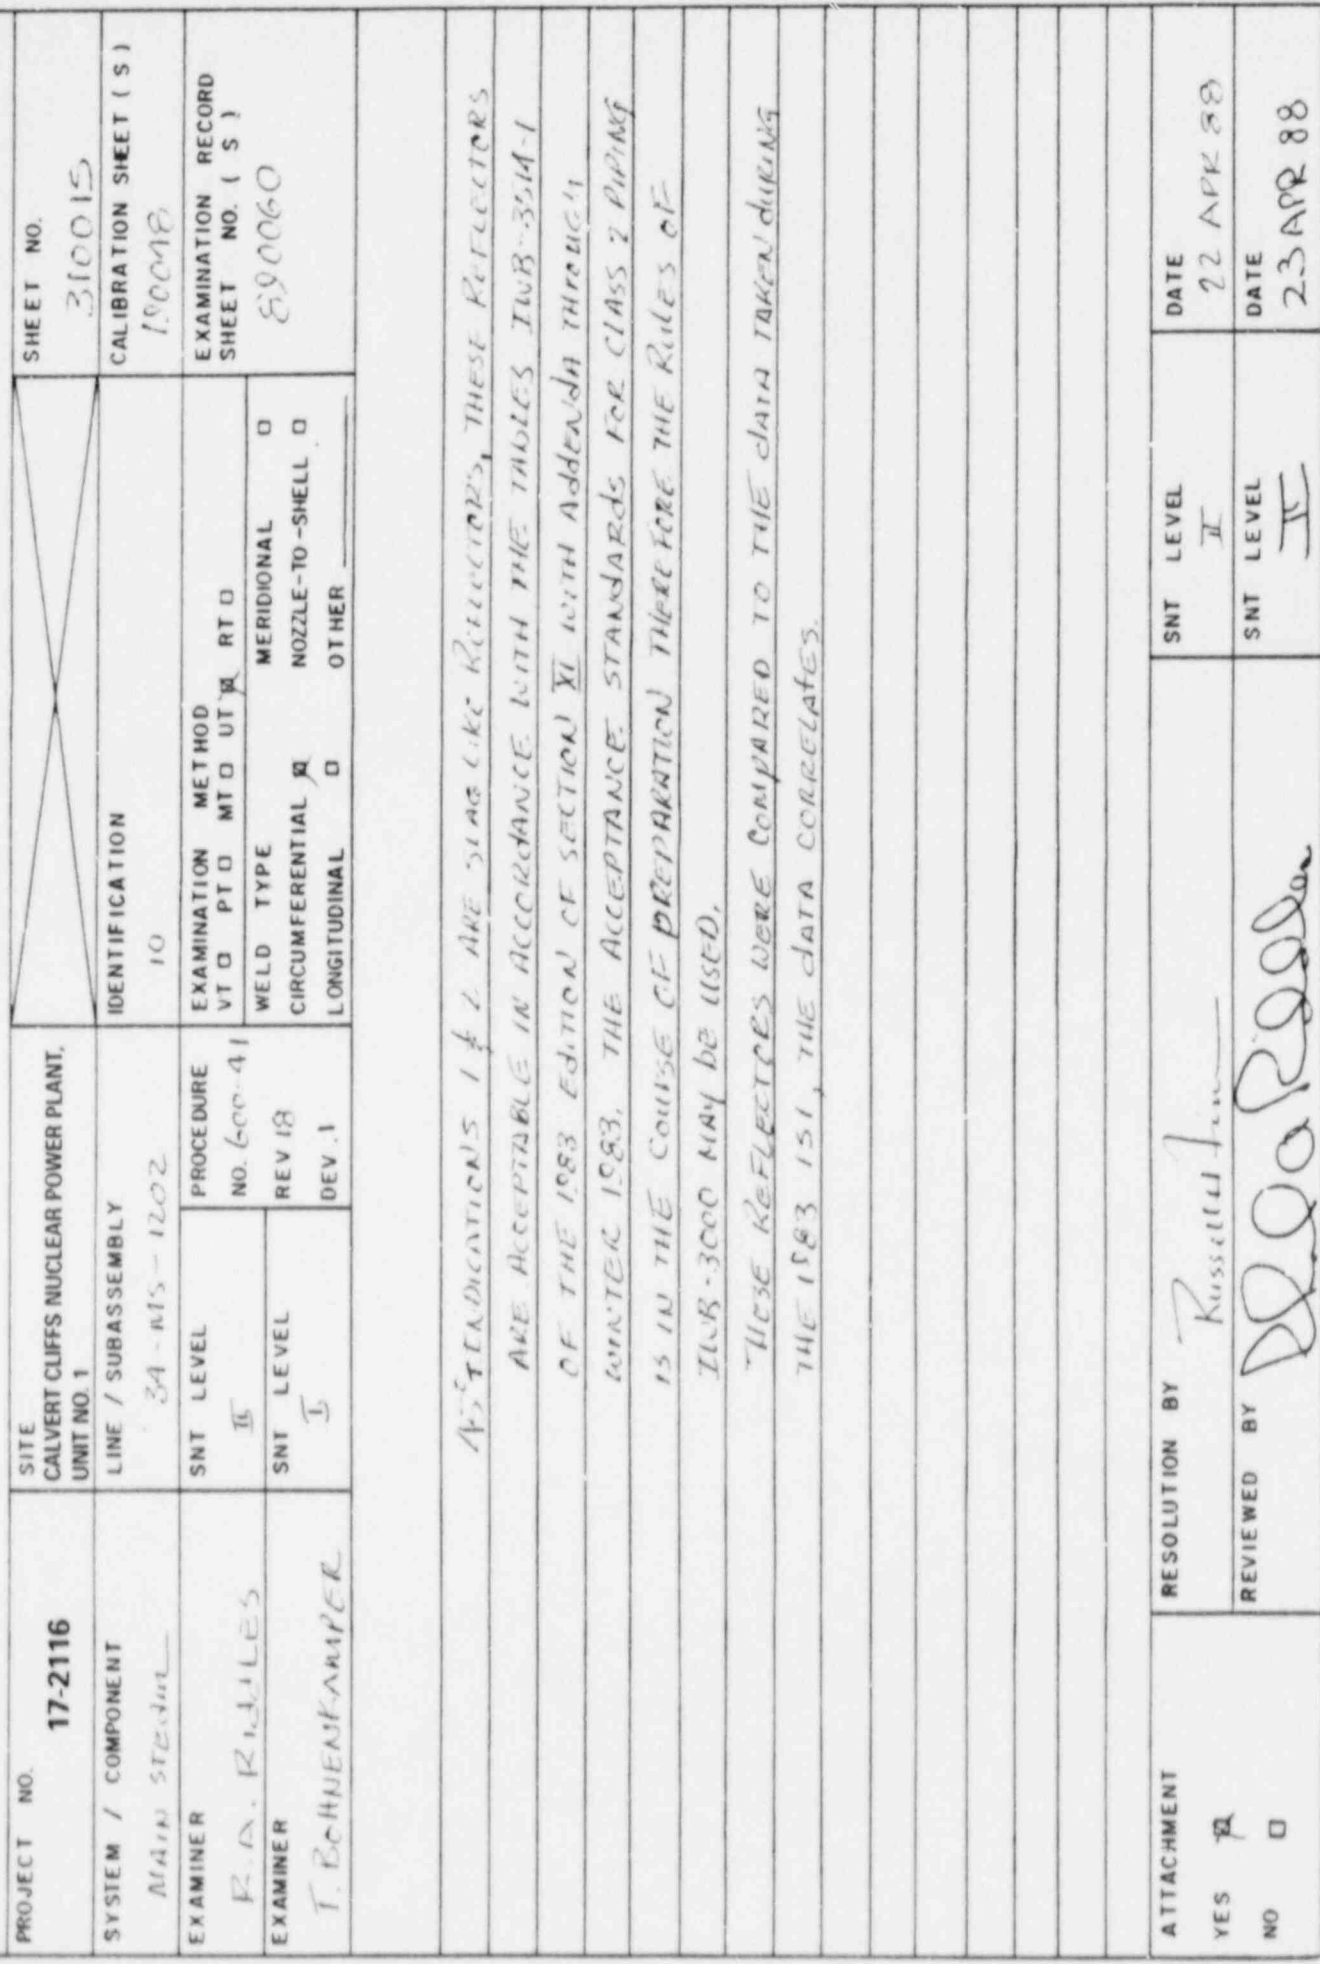 PROJECT NO.
17-2116
SITE
CALVERT CLIFFS NUCLEAR POWER PLANT,
UNIT NO. 1
SHEET NO.
310015
SYSTEM / COMPONENT
MAIN STEAM
LINE / SUBASSEMBLY
34-MS-1202
IDENTIFICATION
10
CALIBRATION SHEET (S)
EXAMINER
SNT LEVEL
II
PROCEDURE
NO. 600-41
REV 18
DEV. 1
EXAMINER
T. BOHNENKAMPER
SNT LEVEL
I
EXAMINATION METHOD
VT □ PT □ MT □ UT ☒ RT □
WELD TYPE
CIRCUMFERENTIAL ☒
LONGITUDINAL □
MERIDIONAL □
NOZZLE-TO-SHELL □
OTHER
EXAMINATION RECORD
SHEET NO. (S)
890060
INDICATIONS 1 & 2 ARE SLAG LIKE REFLECTORS, THESE REFLECTORS
ARE ACCEPTABLE IN ACCORDANCE WITH THE TABLES IWB-3514-1
OF THE 1983 EDITION OF SECTION XI WITH ADDENDA THROUGH
WINTER 1983. THE ACCEPTANCE STANDARDS FOR CLASS 2 PIPING
IS IN THE COURSE OF PREPARATION THEREFORE THE RULES OF
IWB-3000 MAY be USED.
THESE REFLECTORS WERE COMPARED TO THE dATA TAKEN dURING
THE 1983 ISI, THE dATA CORRELATES.
ATTACHMENT
YES ☒
NO □
RESOLUTION BY
Russell
SNT LEVEL
II
DATE
22 APR 88
REVIEWED BY
SNT LEVEL
DATE
23 APR 88